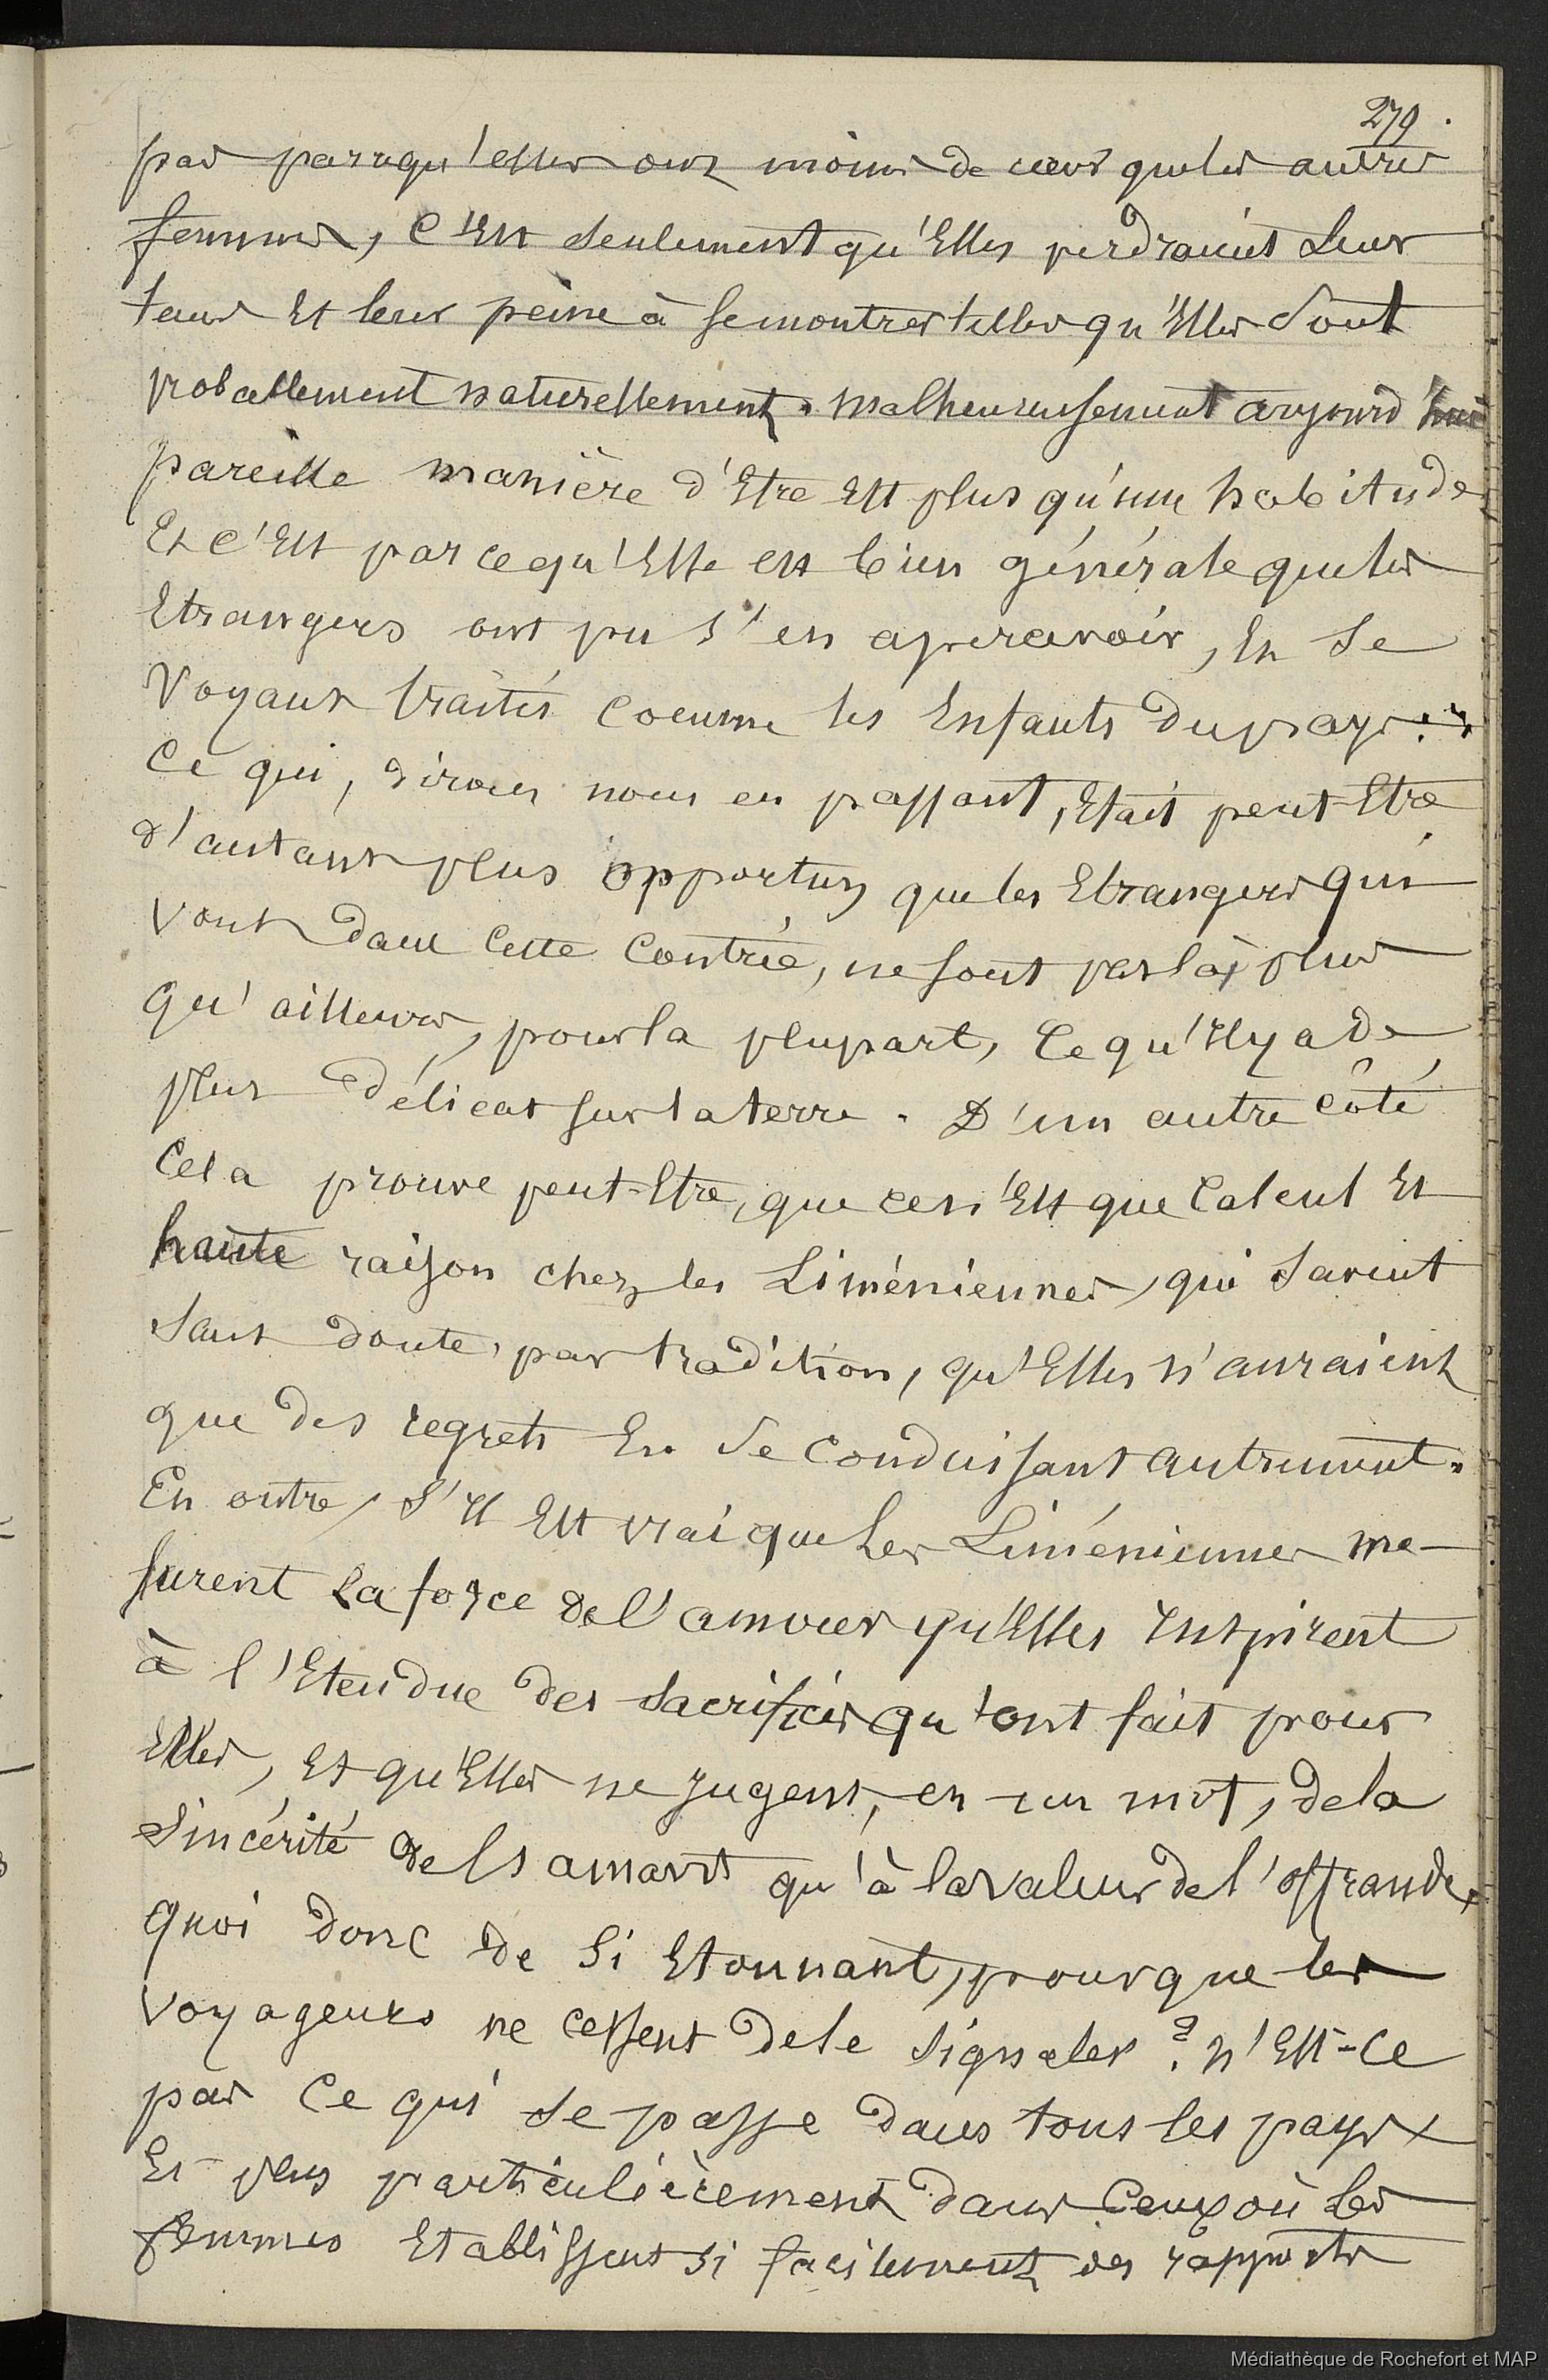 279.
pas parcequ'elles ont moins de cœur que les autres
femmes, C'Est seulement qu'Elles perdraient Leur
tems Et leur peine à se montrer telles qu'Elles Sont
probablement naturellement. Malheureusement aujourd'hui
pareille manière d'Etre Est plus qu'une habitude
Et C'Est parcequ'Elle est bien générale que les
Etrangers ont pu s'en apercevoir, En Se
Voyant traités Comme les Enfants du pays.
Ce qui, dirons nous en passant, Etait peut-Etre
d'autant plus opportun que les Etrangers qui
vont dans Cette Contrée, ne sont pas là plus
qu'ailleurs, pour la plupart, Ce qu'Il y a de
plus délicat sur la terre. D'un autre côté
Cela prouve peut-Etre, que ce n'Est que Calcul Et
haute raison chez les Liméniennes, qui Savent
Sans doute, par tradition, qu'Elles n'auraient
que des regrets En Se Conduisant autrement.
En outre, S'Il Est vrai que Les Liméniennes me-
surent La force de l'amour qu'Elles Inspirent
à l'Etendue des Sacrifices qu'ont fait pour
Elles, Et qu'Elles ne jugent, en un mot, de la
Sincérité de ls amants qu'à la valeur de l'offrande,
quoi donc de Si Etonnant, pour que les
Voyageurs ne cessent de le Signaler ? N'Est-Ce
pas Ce qui Se passe dans tous les pays
Et plus particulièrement dans Ceux où Les
femmes Etablissent si facilement des rapports
Médiathèque de Rochefort et MAP